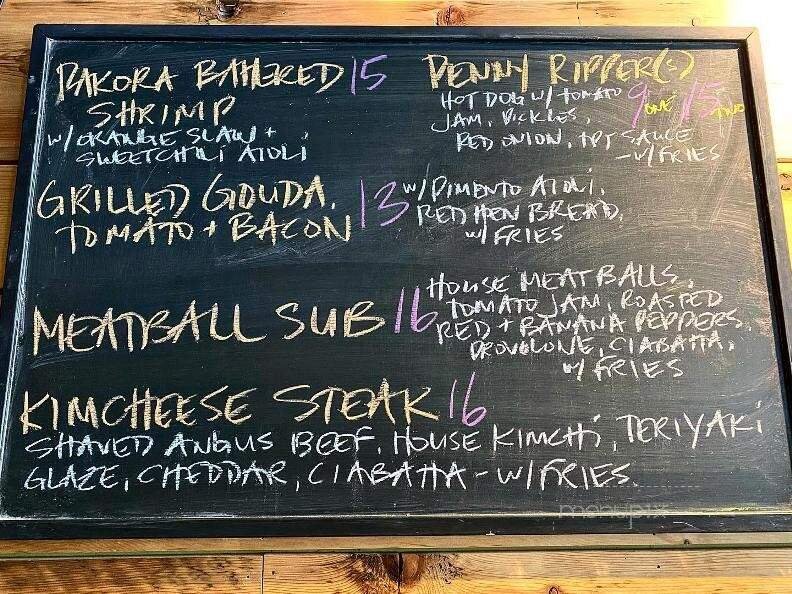 PAKORA BATTERED 15
SHRIMP
W/ ORANGE SLAW +
SWEET CHILI AIOLI
PENNY RIPPER(S)
HOT DOG W/ TOMATO 9 ONE / 15 TWO
JAM, PICKLES,
RED ONION, SAUCE
- W/ FRIES
GRILLED GOUDA,
TOMATO + BACON 13
W/ PIMENTO AIOLI,
RED HEN BREAD,
W/ FRIES
MEATBALL SUB 16
HOUSE MEATBALLS,
TOMATO JAM, ROASTED
RED + BANANA PEPPERS,
PROVOLONE, CIABATTA,
W/ FRIES
KIMCHEESE STEAK 16
SHAVED ANGUS BEEF, HOUSE KIMCHI, TERIYAKI
GLAZE, CHEDDAR, CIABATTA - W/ FRIES